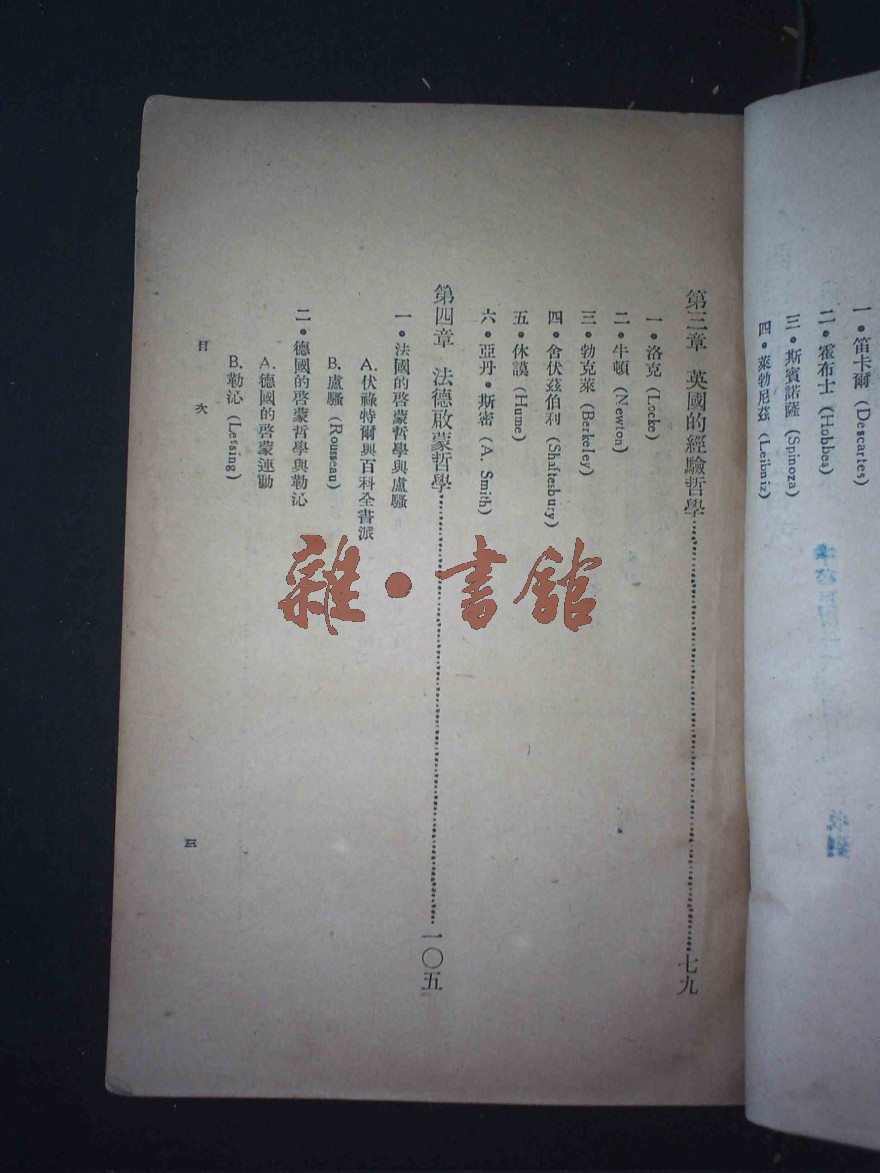 一•笛卡爾 (Descartes)
二•霍布士 (Hobbes)
三•斯賓諾薩 (Spinoza)
四•萊勃尼茲 (Leibniz)
第三章 英國的經驗哲學……七九
一•洛克 (Locke)
二•牛頓 (Newton)
三•勃克萊 (Berkeley)
四•舍伏茲伯利 (Shaftesbury)
五•休謨 (Hume)
六•亞丹•斯密 (A. Smith)
第四章 法德啟蒙哲學……一〇五
一•法國的啓蒙哲學與盧騷
A. 伏祿特爾與百科全書派
B. 盧騷 (Rousseau)
二•德國的啓蒙哲學與勒沁
A. 德國的啓蒙運動
B. 勒沁 (Lessing)
目次
三
雜•書館